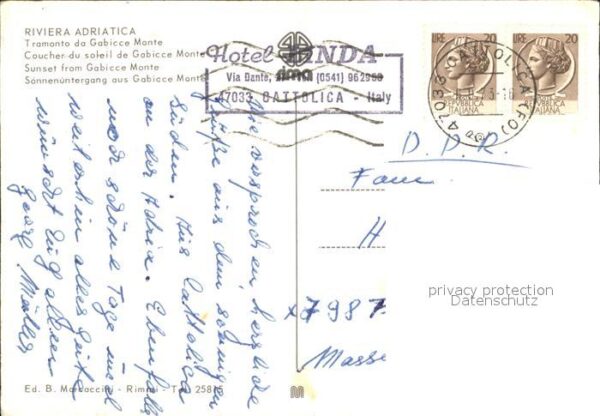 RIVIERA ADRIATICA
Tramonto da Gabicce Monte
Coucher du soleil de Gabicce Monte
Sunset from Gabicce Monte
Sonnenüntergang aus Gabicce Monte
Hotel LINDA
Via Dante, (0541) 962
47033 CATTOLICA - Italy
rima
LIRE 20
REPVBBLICA
ITALIANA
LIRE 20
REPVBBLICA
ITALIANA
47033 CATTOLICA (FO)
Wie versprochen, herzliche
Grüße aus dem sonnigen
Süden. Aus Cattolica
an der Adria. Ebenfalls
noch schöne Tage und
weiterhin alles Gute
wünscht Eug allen
Georg Müller
D. D. R.
Fam
H
x7987
Masse
privacy protection
Datenschutz
Ed. B. Marcaccini - Rimini - Tel. 25815